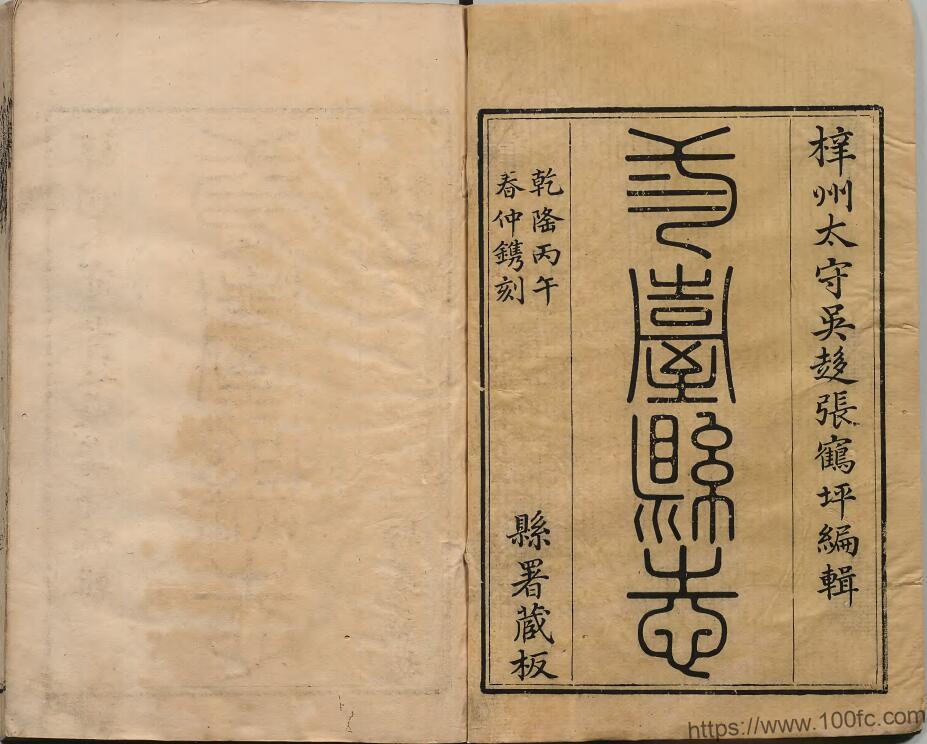 梓州太守吳趍張鶴坪編輯
弎臺縣志
乾隆丙午
春仲鐫刻
縣署藏板
https://www.100fc.com